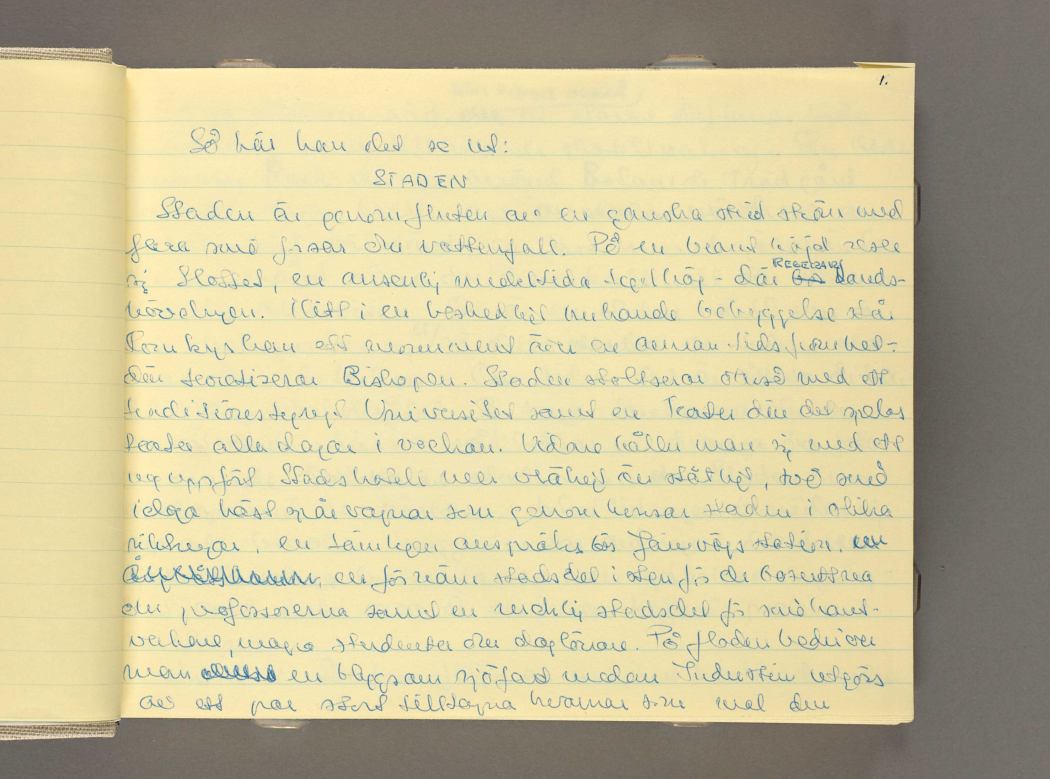 1.
Så här kan det se ut:
STADEN
Staden är genomfluten av en ganska strid ström med
flera små forsar och vattenfall. På en brant höjd reser
sig Slottet, en ansenlig medeltida tegelhög - där REGERAR Lands-
hövdingen. Mitt i en beskedligt krukande bebyggelse står
Domkyrkan ett monument över en annan tids fromhet -
där teoretiserar Biskopen. Staden stoltserar också med ett
traditionstyngt Universitet samt en Teater där det spelas
teater alla dagar i veckan. Vidare håller man sig med ett
uppfört Stadshotell, två små
idoga hästspårvagnar som genomkorsar staden i olika
riktningar, en tämligen anspråkslös Järnvägsstation,
en förnäm stadsdel i sten för de besuttna
och professorerna samt en rucklig stadsdel för små hant-
verkare, magra studenter och daglönare. På floden bedriver
man en blygsam sjöfart medan Industrin utgörs
av ett par stort tilltagna kvarnar som mal den